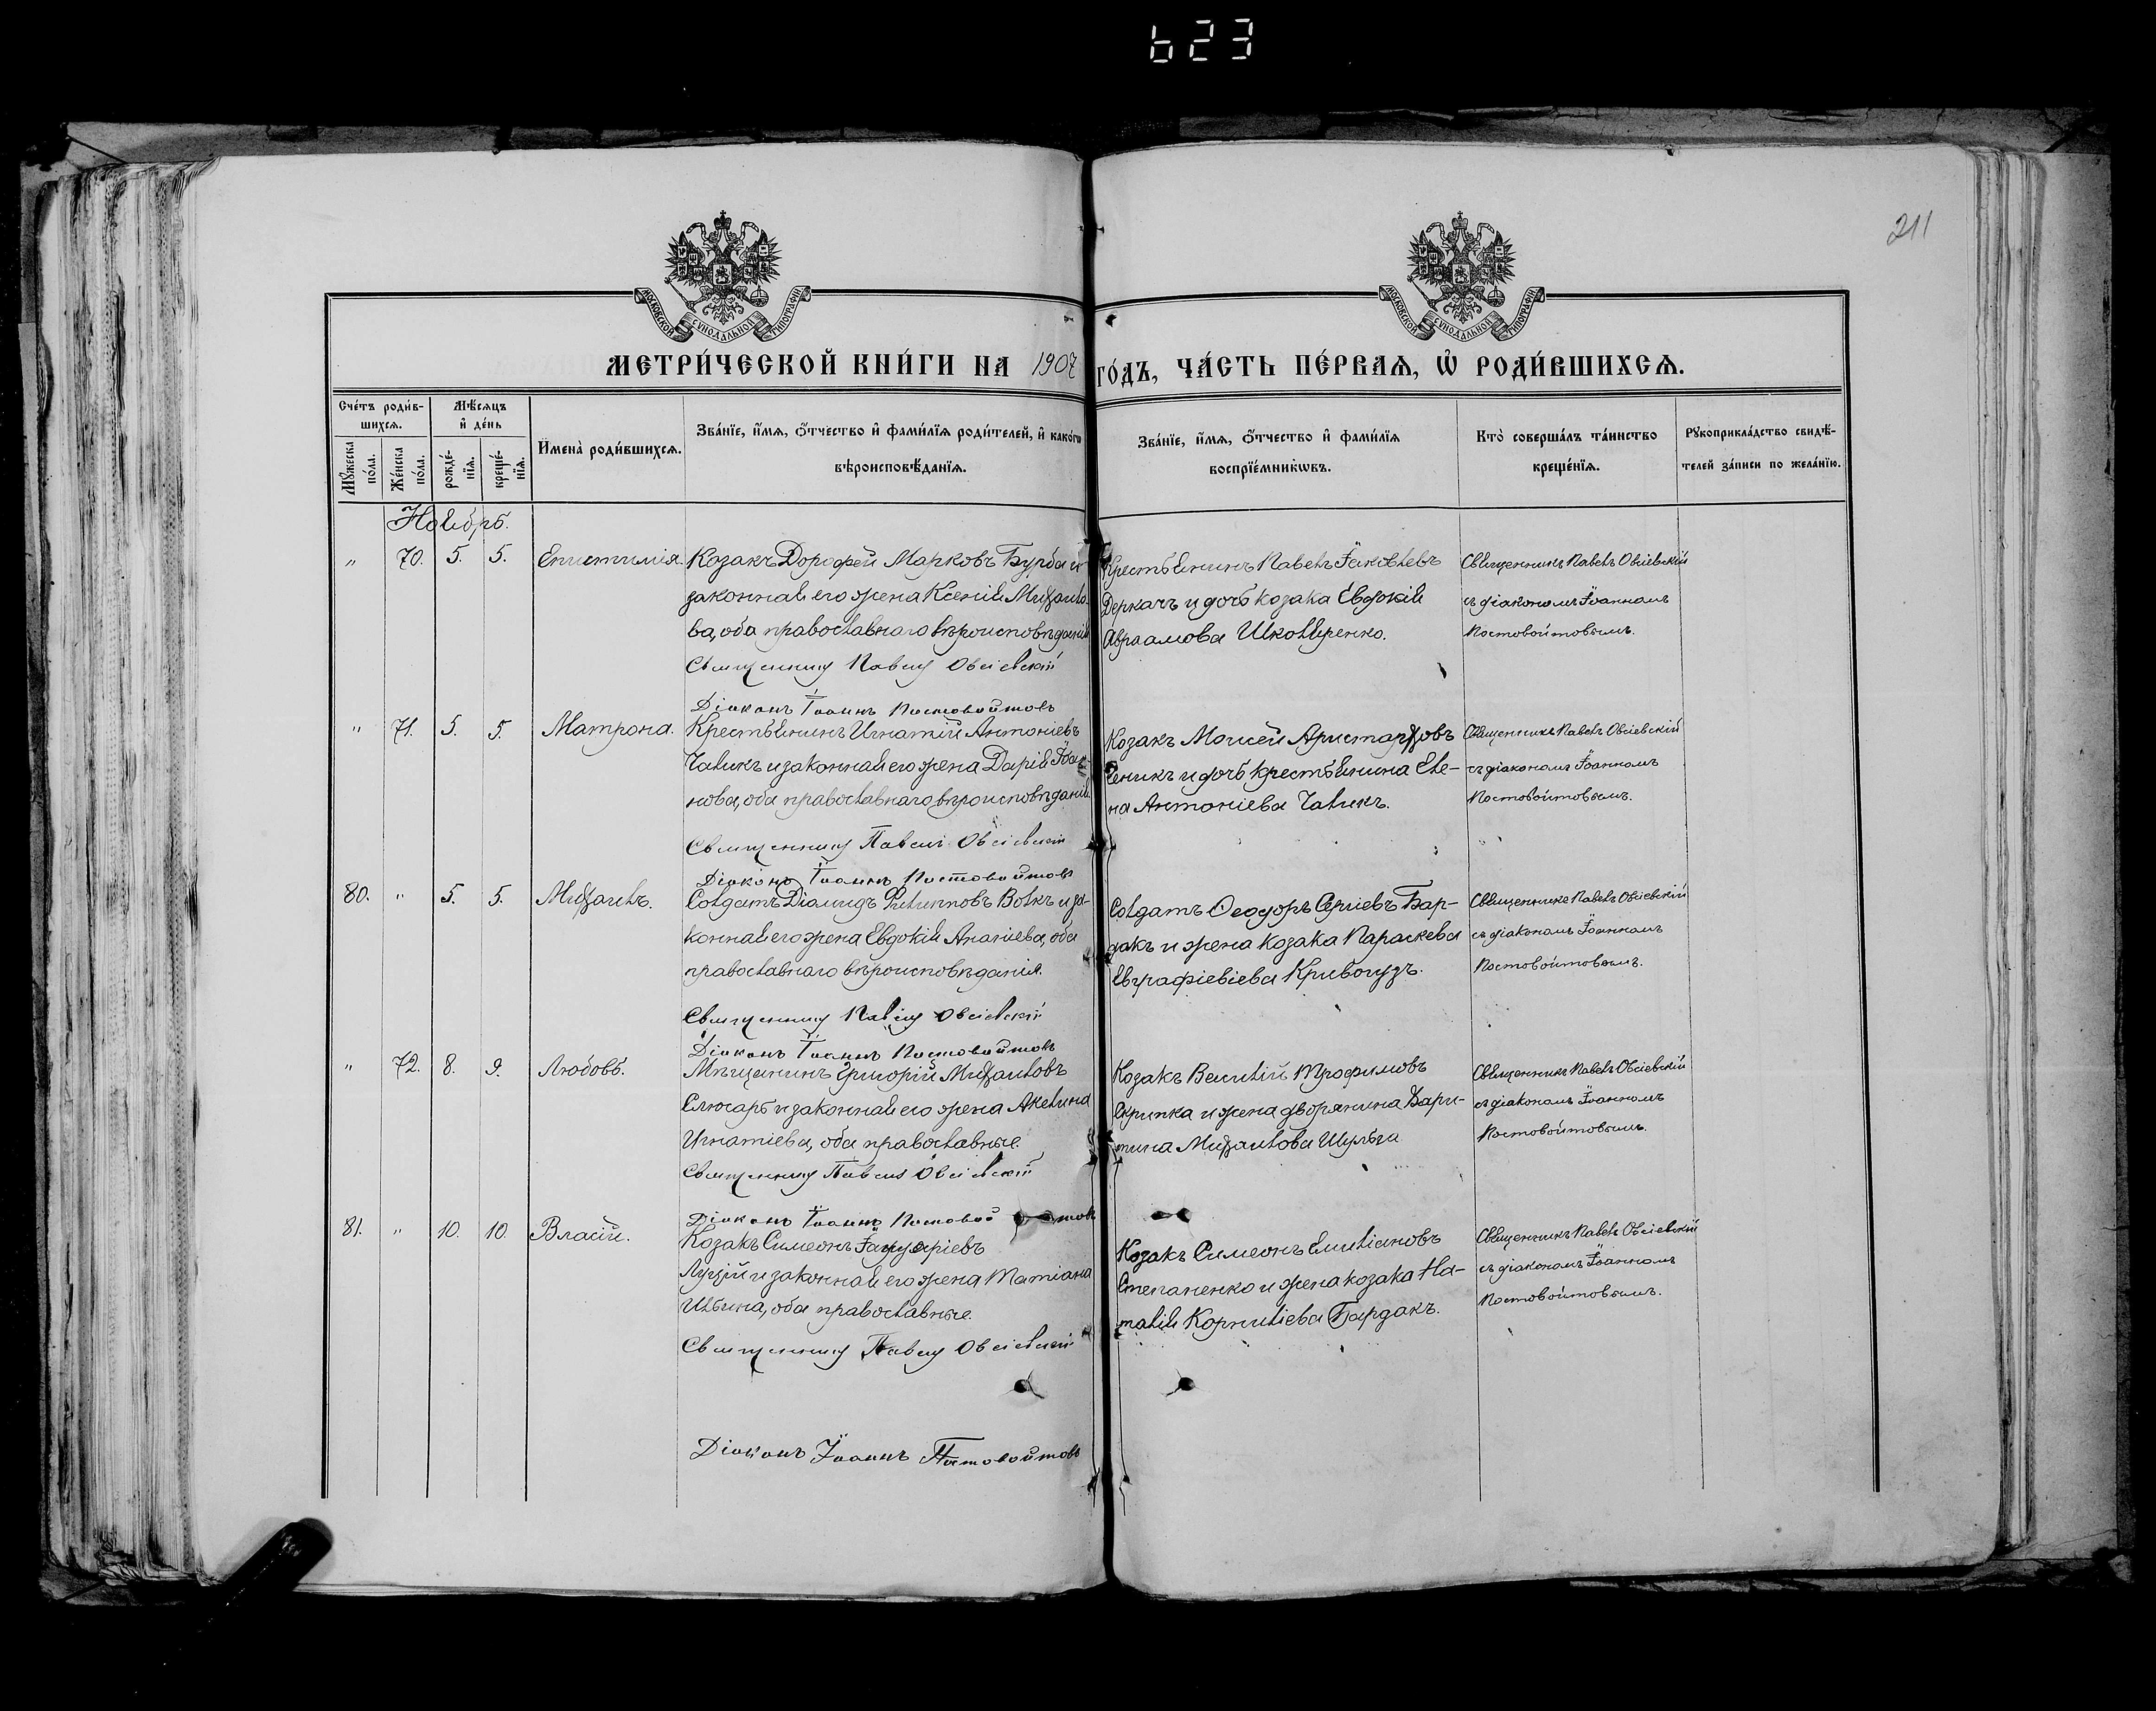 623
211
МОСКОВСКОЙ СУНОДАЛЬНОЙ ТИПОГРАФІИ
МОСКОВСКОЙ СУНОДАЛЬНОЙ ТИПОГРАФІИ
МЕТРИ́ЧЕСКОЙ КНИ́ГИ НА 1907 ГО́ДЪ, ЧА́СТЬ ПЕ́РВАѦ, Ѡ҆ РОДИ́ВШИХСѦ.
Сче́тъ роди́в-
шихсѧ.
Мꙋ́жеска по́ла.
Же́нска по́ла.
Мѣ́сѧцъ
и҆ де́нь
рожде́-
нїѧ.
креще́-
нїѧ.
И҆мена̀ роди́вшихсѧ.
Зва́нїе, и҆́мѧ, ѻ҆́тчество и҆ фами́лїѧ роди́телей, и҆ како́гѡ
вѣроисповѣ́данїѧ.
Зва́нїе, и҆́мѧ, ѻ҆́тчество и҆ фами́лїѧ
воспрїе́мникѡвъ.
Кто̀ соверша́лъ та́инство
креще́нїѧ.
Рꙋкоприкла́дство свидѣ́-
телей за́писи по жела́нїю.
Ноябрь.
" 70. 5. 5. Епистимія.
Козакъ Дорофей Марковъ Бурба и
законная его жена Ксенія Михаило-
ва, оба православнаго вѣроисповѣданія
Священникъ Павелъ Овсіевскій
Діаконъ Іоаннъ Постовойтовъ
Крестьянинъ Павелъ Іаковлевъ
Деркачъ и дочь козака Евдокія
Авраамова Школяренко.
Священникъ Павелъ Овсіевскій
съ діакономъ Іоанномъ
Постовойтовымъ.
" 71. 5. 5. Матрона.
Крестьянинъ Игнатій Антоніевъ
Чаликъ и законная его жена Дарія Іоан-
нова, оба православнаго вѣроисповѣданія.
Священникъ Павелъ Овсіевскій
Діаконъ Іоаннъ Постовойтовъ
Козакъ Моисей Аристарховъ
и дочь крестьянина Еле-
на Антоніева Чаликъ.
Священникъ Павелъ Овсіевскій
съ діакономъ Іоанномъ
Постовойтовымъ.
80. " 5. 5. Михаилъ.
Солдатъ Діомидъ Филипповъ Волкъ и за-
конная его жена Евдокія Ананіева, оба
православнаго вѣроисповѣданія.
Священникъ Павелъ Овсіевскій
Діаконъ Іоаннъ Постовойтовъ
Солдатъ Ѳеодоръ Сергіевъ Бар-
дакъ и жена козака Параскева
Криводудъ.
Священникъ Павелъ Овсіевскій
съ діакономъ Іоанномъ
Постовойтовымъ.
" 72. 8. 9. Любовь.
Мѣщанинъ Григорій Михаиловъ
Слюсарь и законная его жена Акелина
Игнатіева, оба православные.
Священникъ Павелъ Овсіевскій
Діаконъ Іоаннъ Постовойтовъ
Козакъ Василій Трофимовъ
Скрипка и жена дворянина Хари-
тина Михаилова Шульга
Священникъ Павелъ Овсіевскій
съ діакономъ Іоанномъ
Постовойтовымъ.
81. " 10. 10. Власій.
Козакъ Симеонъ Іаннуаріевъ
Луцій и законная его жена Татіана
Ильина, оба православные.
Священникъ Павелъ Овсіевскій
Діаконъ Іоаннъ Постовойтовъ
Козакъ Симеонъ Емиліановъ
Степаненко и жена козака На-
талія Корниліева Бардакъ.
Священникъ Павелъ Овсіевскій
съ діакономъ Іоанномъ
Постовойтовымъ.